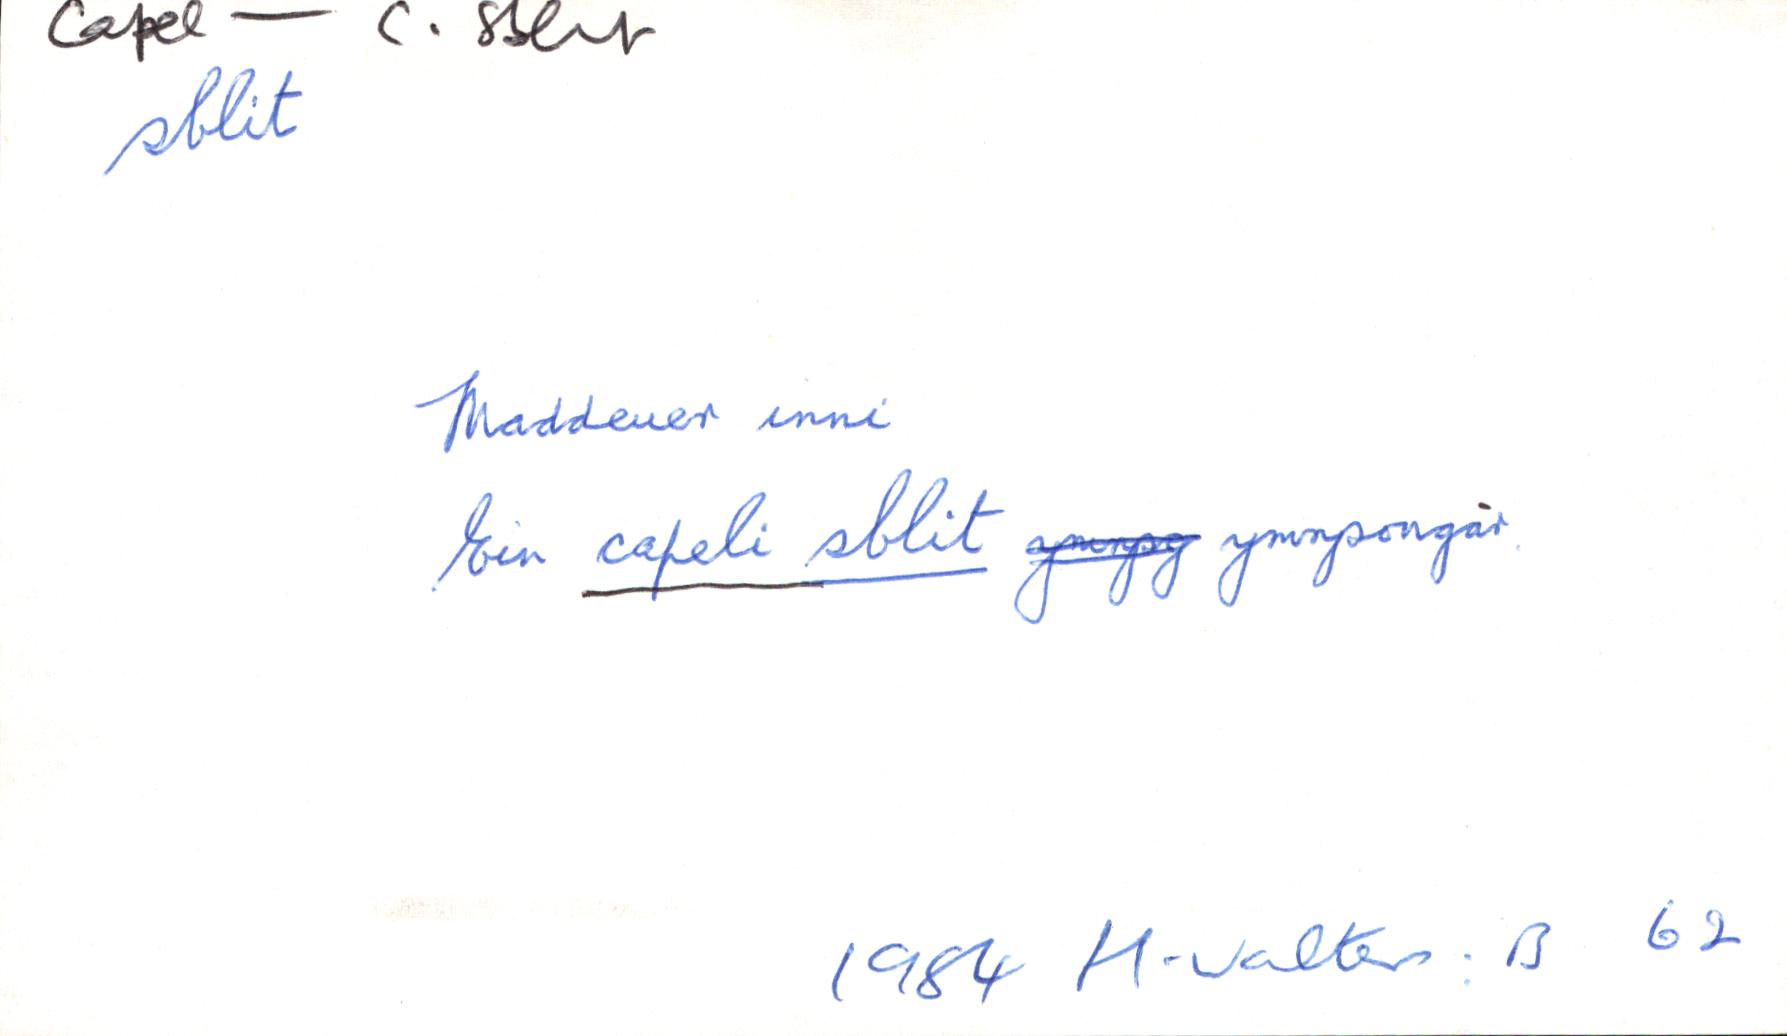 Capel — c. sblit
sblit
Maddeuer inni
Ein capeli sblit ymnpg ymnpsongar.
1984 H. Walters: B 62